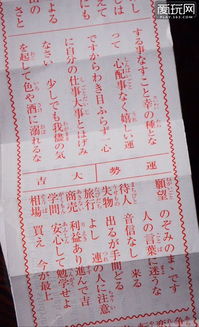 する事なすこと幸の種と
って 心配事なく嬉しい運
ですからわき目ふらず 心
に自分の仕事大事とはげみ
なさい 少しでも我儘の気
を起して色や酒に溺れるな
運勢 大吉
願望 のぞみのままです
人の言葉に迷うな
待人 音信なし 来る
失物 出るが手間どる
旅行 よし 連の人に注意
商売 利益あり進んで吉
学問 安心して勉学せよ
相場 買え 今が最上